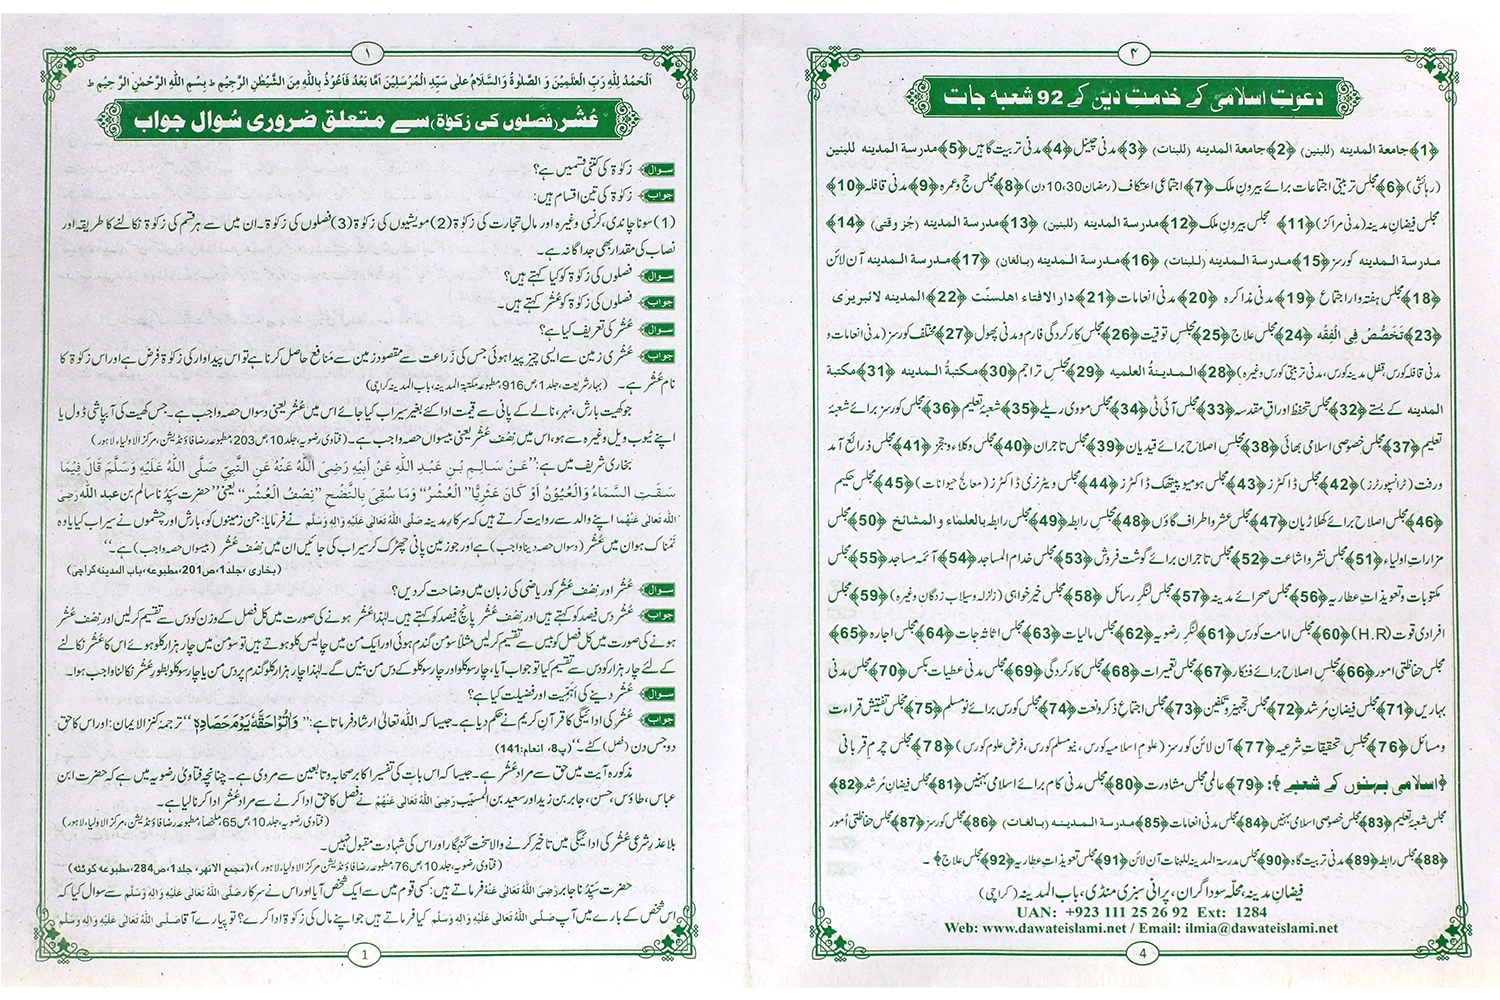 ۱
اَلْحَمْدُ لِلّٰهِ رَبِّ الْعٰلَمِيْنَ وَ الصَّلٰوةُ وَالسَّلَامُ عَلٰى سَيِّدِ الْمُرْسَلِيْنَ اَمَّا بَعْدُ فَاَعُوْذُ بِاللّٰهِ مِنَ الشَّيْطٰنِ الرَّجِيْمِ ط بِسْمِ اللّٰهِ الرَّحْمٰنِ الرَّحِيْمِ ط
عُشر (فصلوں کی زکوٰۃ) سے متعلق ضروری سُوال جواب
سوال زکوٰۃ کی کتنی قسمیں ہے؟
جواب زکوٰۃ کی تین اقسام ہیں:
(1) سونا چاندی، کرنسی وغیرہ اور مالِ تجارت کی زکوٰۃ (2) مویشیوں کی زکوٰۃ (3) فصلوں کی زکوٰۃ۔ ان میں سے ہر قسم کی زکوٰۃ نکالنے کا طریقہ اور
نصاب کی مقدار بھی جداگانہ ہے۔
سوال فصلوں کی زکوٰۃ کو کیا کہتے ہیں؟
جواب فصلوں کی زکوٰۃ کو عُشر کہتے ہیں۔
سوال عُشر کی تعریف کیا ہے؟
جواب عُشری زمین سے ایسی چیز پیدا ہوئی جس کی زَراعت سے مقصود زمین سے مَنافع حاصل کرنا ہے تو اس پیداوار کی زکوٰۃ فرض ہے اور اس زکوٰۃ کا
نام عُشر ہے۔ (بہارِ شریعت، جلد 1، ص 916، مطبوعہ مکتبۃ المدینہ، باب المدینہ کراچی)
جو کھیت بارش، نہر، نالے کے پانی سے قیمت ادا کئے بغیر سیراب کیا جائے اس میں عُشر یعنی دسواں حصہ واجب ہے۔ جس کھیت کی آبپاشی ڈول یا
اپنے ٹیوب ویل وغیرہ سے ہو، اس میں نِصف عُشر یعنی بیسواں حصہ واجب ہے۔ (فتاوی رضویہ، جلد 10، ص 203، مطبوعہ رضا فاؤنڈیشن، مرکز الاولیاء، لاہور)
بخاری شریف میں ہے: ’’عَنْ سَالِمِ بْنِ عَبْدِ اللّٰهِ عَنْ اَبِيْهِ رَضِیَ اللّٰهُ عَنْهُ عَنِ النَّبِيِّ صَلَّى اللّٰهُ عَلَيْهِ وَسَلَّمَ قَالَ فِيْمَا
سَقَتِ السَّمَاءُ وَالْعُيُوْنُ اَوْ كَانَ عَثَرِيًّا ’’الْعُشْرُ‘‘ وَمَا سُقِیَ بِالنَّضْحِ ’’نِصْفُ الْعُشْرِ‘‘ یعنی ’’حضرت سیِّدُنا سالم بن عبد اللّٰہ رَضِیَ
اللّٰہُ تَعَالٰی عَنْهُمَا اپنے والد سے روایت کرتے ہیں کہ سرکارِ مدینہ صَلَّی اللّٰہُ تَعَالٰی عَلَیْہِ وَاٰلِہٖ وَسَلَّم نے فرمایا: جن زمینوں کو، بارش اور چشموں نے سیراب کیا یا وہ
نمناک ہو ان میں عُشر (دسواں حصہ دینا واجب) ہے اور جو زمین پانی چھڑک کر سیراب کی جائیں ان میں نِصْف عُشر (بیسواں حصہ واجب) ہے۔‘‘
(بخاری، جلد1، ص201، مطبوعہ، باب المدینہ کراچی)
سوال عُشر اور نِصْف عُشر کو ریاضی کی زبان میں وضاحت کر دیں؟
جواب عُشر دس فیصد کو کہتے ہیں اور نِصْف عُشر پانچ فیصد کو کہتے ہیں۔ لہٰذا عُشر ہونے کی صورت میں کل فصل کے وزن کو دس سے تقسیم کر لیں اور نِصْف عُشر
ہونے کی صورت میں کل فصل کو بیس سے تقسیم کر لیں مثلاً سو من گندم ہوئی اور ایک من میں چالیس کلو ہوتے ہیں تو سو من میں چار ہزار کلو ہوئے اس کا عُشر نکالنے
کے لئے چار ہزار کو دس سے تقسیم کیا تو جواب آیا، چار سو کلو اور چار سو کلو کے دس من بنیں گے۔ لہٰذا چار ہزار کلو گندم پر دس من یا چار سو کلو بطورِ عُشر نکالنا واجب ہوا۔
سوال عُشر دینے کی اَہَمیت اور فضیلت کیا ہے؟
جواب عُشر کی ادائیگی کا قرآنِ کریم نے حکم دیا ہے۔ جیسا کہ اللّٰہ تعالٰی ارشاد فرماتا ہے: ’’وَاٰتُوْا حَقَّهٗ یَوْمَ حَصَادِهٖ‘‘ ترجمہ کنز الایمان: اور اس کا حق
دو جس دن (فصل) کٹے۔‘‘ (پ8، انعام:141)
مذکورہ آیت میں حق سے مراد عُشر ہے۔ جیسا کہ اس بات کی تفسیر اکابر صحابہ و تابعین سے مروی ہے۔ چنانچہ فتاویٰ رضویہ میں ہے کہ حضرت ابن
عباس، طاؤس، حسن، جابر بن زید اور سعید بن المسیّب رَضِیَ اللّٰہُ تَعَالٰی عَنْهُمْ نے فصل کا حق ادا کرنے سے مراد عُشر ادا کرنا لیا ہے۔
(فتاوی رضویہ، جلد 10، ص 65، ملخصاً، مطبوعہ رضا فاؤنڈیشن، مرکز الاولیاء، لاہور)
بلا عذرِ شرعی عُشر کی ادائیگی میں تاخیر کرنے والا سخت گنہگار اور اس کی شہادت مقبول نہیں۔
(فتاوی رضویہ، جلد 10، ص 76، مطبوعہ رضا فاؤنڈیشن مرکز الاولیاء، لاہور)، (مجمع الانھر، جلد1، ص284، مطبوعہ کوئٹہ)
حضرت سیِّدُنا جابر رَضِیَ اللّٰہُ تَعَالٰی عَنْہُ فرماتے ہیں: کسی قوم میں سے ایک شخص آیا اور اس نے سرکار صَلَّی اللّٰہُ تَعَالٰی عَلَیْہِ وَاٰلِہٖ وَسَلَّم سے سوال کیا کہ
اس شخص کے بارے میں آپ صَلَّی اللّٰہُ تَعَالٰی عَلَیْہِ وَاٰلِہٖ وَسَلَّم کیا فرماتے ہیں جو اپنے مال کی زکوٰۃ ادا کرے؟ تو پیارے آقا صَلَّی اللّٰہُ تَعَالٰی عَلَیْہِ وَاٰلِہٖ وَسَلَّم
1
۴
دعوتِ اسلامی کے خدمتِ دین کے 92 شعبہ جات
﴿1﴾ جامعة المدینه (للبنین) ﴿2﴾ جامعة المدینه (للبنات) ﴿3﴾ مدنی چینل ﴿4﴾ مدنی تربیت گاہیں ﴿5﴾ مدرسة المدینه للبنین
(رہائشی) ﴿6﴾ مجلس تربیتی اجتماعات برائے بیرونِ ملک ﴿7﴾ اجتماعی اعتکاف (رمضان 10،30 دن) ﴿8﴾ مجلس حج و عمرہ ﴿9﴾ مدنی قافلہ ﴿10﴾
مجلس فیضانِ مدینہ (مدنی مراکز) ﴿11﴾ مجلس بیرونِ ملک ﴿12﴾ مدرسة المدینه (للبنین) ﴿13﴾ مدرسة المدینه (جُز وقتی) ﴿14﴾
مدرسة المدینه کورسز ﴿15﴾ مدرسة المدینه (للبنات) ﴿16﴾ مدرسة المدینه (بالغان) ﴿17﴾ مدرسة المدینه آن لائن
﴿18﴾ مجلس ہفتہ وار اجتماع ﴿19﴾ مدنی مذاکرہ ﴿20﴾ مدنی انعامات ﴿21﴾ دار الافتاء اهلسنّت ﴿22﴾ المدینه لائبریری
﴿23﴾ تَخَصُّصْ فِی الْفِقْه ﴿24﴾ مجلس علاج ﴿25﴾ مجلس توقیت ﴿26﴾ مجلس کارکردگی فارم و مدنی پھول ﴿27﴾ مختلف کورسز (مدنی انعامات و
مدنی قافلہ کورس، قفلِ مدینہ کورس، مدنی تربیتی کورس وغیرہ) ﴿28﴾ المدینةُ العلمیه ﴿29﴾ مجلسِ تراجم ﴿30﴾ مکتبةُ المدینه ﴿31﴾ مکتبة
المدینه کے بستے ﴿32﴾ مجلس تحفظِ اوراقِ مقدسہ ﴿33﴾ مجلس آئی ٹی ﴿34﴾ مجلس مووی ریلے ﴿35﴾ شعبۂ تعلیم ﴿36﴾ مجلس کورسز برائے شعبۂ
تعلیم ﴿37﴾ مجلس خصوصی اسلامی بھائی ﴿38﴾ مجلس اصلاح برائے قیدیان ﴿39﴾ مجلس تاجران ﴿40﴾ مجلس وکلاء و ججز ﴿41﴾ مجلس ذرائع آمد
ورفت (ٹرانسپورٹرز) ﴿42﴾ مجلس ڈاکٹرز ﴿43﴾ مجلس ہومیوپیتھک ڈاکٹرز ﴿44﴾ مجلس ویٹرنری ڈاکٹرز (معالجِ حیوانات) ﴿45﴾ مجلس حکیم
﴿46﴾ مجلس اصلاح برائے کھلاڑیان ﴿47﴾ مجلس عشر و اطراف گاؤں ﴿48﴾ مجلس رابطہ ﴿49﴾ مجلس رابطہ بالعلماء و المشائخ ﴿50﴾ مجلس
مزاراتِ اولیاء ﴿51﴾ مجلس نشر و اشاعت ﴿52﴾ مجلس تاجران برائے گوشت فروش ﴿53﴾ مجلس خدام المساجد ﴿54﴾ آئمہ مساجد ﴿55﴾ مجلس
مکتوبات و تعویذاتِ عطاریہ ﴿56﴾ مجلس صحرائے مدینہ ﴿57﴾ مجلس لنگرِ رسائل ﴿58﴾ مجلس خیر خواہی (زلزلہ و سیلاب زدگان وغیرہ) ﴿59﴾ مجلس
افرادی قوت (H.R) ﴿60﴾ مجلس امامت کورس ﴿61﴾ لنگرِ رضویہ ﴿62﴾ مجلس مالیات ﴿63﴾ مجلس اثاثہ جات ﴿64﴾ مجلس اجارہ ﴿65﴾
مجلس حفاظتی امور ﴿66﴾ مجلس اصلاح برائے فنکار ﴿67﴾ مجلس تعمیرات ﴿68﴾ مجلس کارکردگی ﴿69﴾ مجلس مدنی عطیات بکس ﴿70﴾ مجلس مدنی
بہاریں ﴿71﴾ مجلس فیضانِ مُرشد ﴿72﴾ مجلس تجہیز و تکفین ﴿73﴾ مجلس اجتماعِ ذکر و نعت ﴿74﴾ مجلس کورس برائے نو مسلم ﴿75﴾ مجلس تفتیش قراءت
و مسائل ﴿76﴾ مجلس تحقیقاتِ شرعیہ ﴿77﴾ آن لائن کورسز (علومِ اسلامیہ کورس، نیو مسلم کورس، فرض علوم کورس) ﴿78﴾ مجلس چرمِ قربانی
﴿اسلامی بہنوں کے شعبے﴾: ﴿79﴾ عالمی مجلس مشاورت ﴿80﴾ مجلس مدنی کام برائے اسلامی بہنیں ﴿81﴾ مجلس فیضانِ مُرشد ﴿82﴾
مجلس شعبۂ تعلیم ﴿83﴾ مجلس خصوصی اسلامی بہنیں ﴿84﴾ مجلس مدنی انعامات ﴿85﴾ مدرسة المدینه (بالغات) ﴿86﴾ مجلس کورسز ﴿87﴾ مجلس حفاظتی اُمور
﴿88﴾ مجلس رابطہ ﴿89﴾ مدنی تربیت گاہ ﴿90﴾ مجلس مدرسة المدینه للبنات آن لائن ﴿91﴾ مجلس تعویذاتِ عطاریہ ﴿92﴾ مجلس علاج۔
فیضانِ مدینہ، محلّہ سوداگران، پرانی سبزی منڈی، باب المدینہ (کراچی)
UAN: +923 111 25 26 92 Ext: 1284
Web: www.dawateislami.net / Email: ilmia@dawateislami.net
4